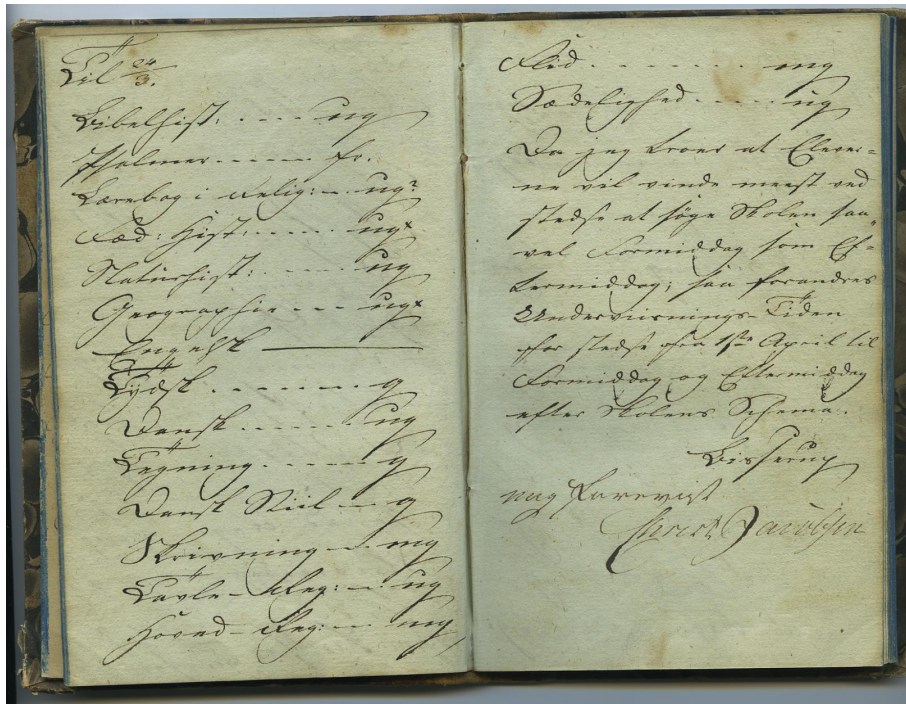 Til 24/3.
Bibelhist: . - - - ug
Psalmer - - - - - fr.
Lærebog i Relig: - . ug?
Fæd: Hist: - - - - ug×
Naturhist: . - - - ug
Geographie - - - ug×
Engelsk ———
Tydsk . - - - - - . g
Dansk . - - - - . ug
Tegning - - - - - g
Dansk Stiil - - g
Skrivning - . mg
Tavle - Reg: - . ug
Hoved - Reg: - - mg
Flid . - - - - - . mg
Sædelighed . - - - . ug
Da jeg troer at Elever=
ne vil vinde meest ved
stedse at søge Skolen saa=
vel Formiddag som Ef=
termiddag; saa forandres
Underviisnings-Tiden
for stedse fra 1ste April til
Formiddag og Eftermiddag
efter Skolens Schema.
Bisserup
Christ Jacobsen